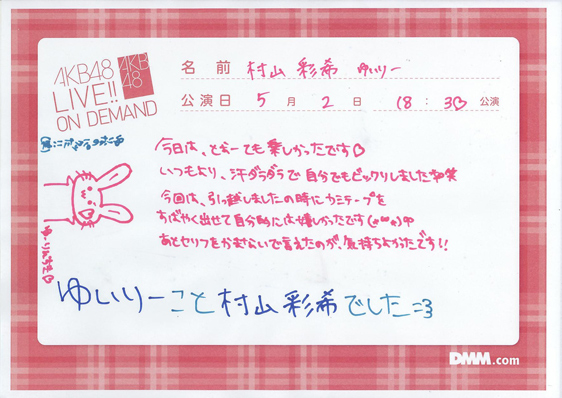 AKB48
LIVE!!
ON DEMAND
AKB
48
名前 村山 彩希 ゆいりー
公演日 5月 2日 18:30 公演
今日は、とぉーても楽しかったです♡
いつもより、汗ダラダラで自分でもビックリしました笑
今回は、引っ越しましたの時にガミテープを
すばやく出せて自分的には嬉しかったです
あとセリフをかまないで言えたのが、気持ちよかったです!!
ゆいりーこと村山彩希でした=3
DMM.com